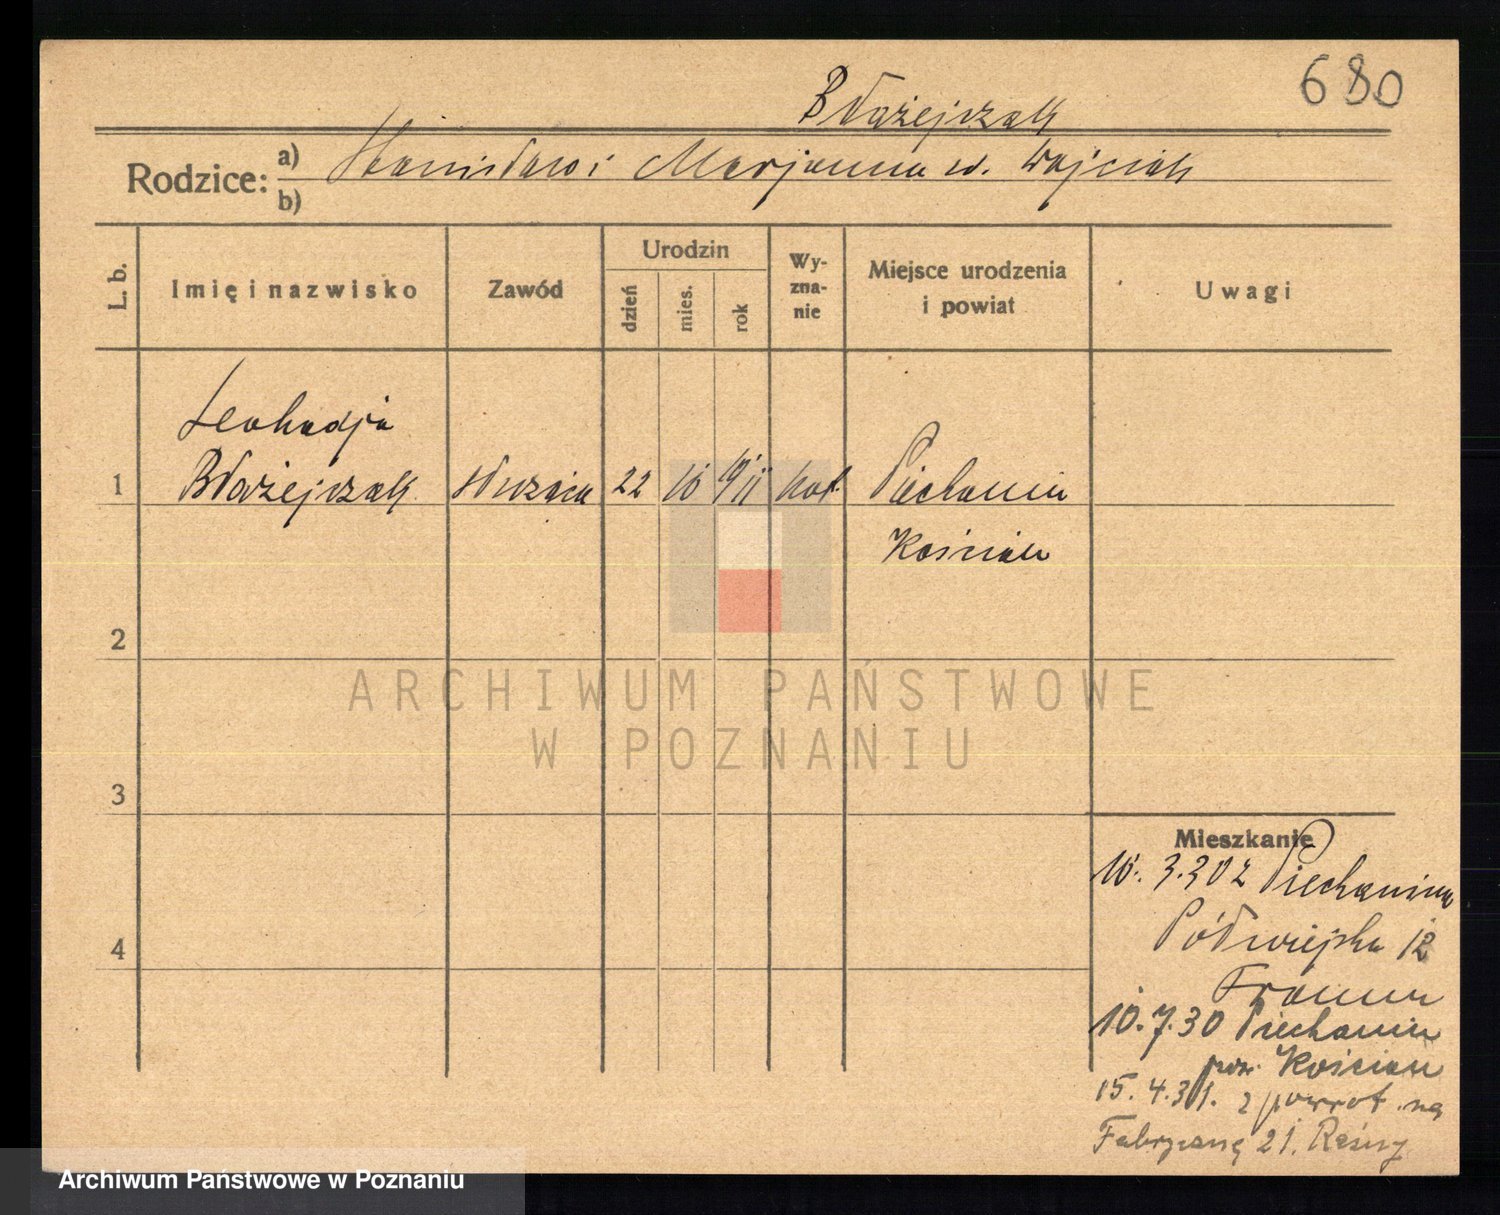 680
Błażejczak
Rodzice: a) Stanisław i Marjanna w. Wojciak
b)
L. b. Imię i nazwisko Zawód Urodzin dzień mies. rok Wy-zna-nie Miejsce urodzenia i powiat Uwagi
Leokadja
1 Błażejczak służąca 22 10 1911 kat. Piechanin
Kościan
2
ARCHIWUM PAŃSTWOWE
W POZNANIU
3
Mieszkanie
10. 3. 30 z Piechanina
4 Półwiejska 12
10. 7. 30 Piechanin
pow. Kościan
15. 4. 31. z powrot na
Fabryczną 21.
Archiwum Państwowe w Poznaniu